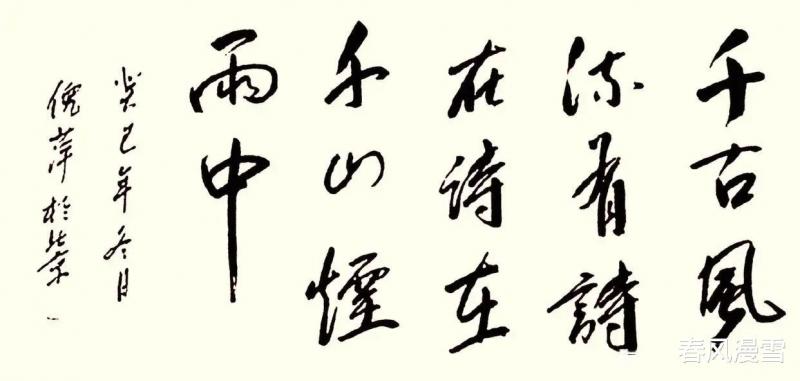 千古風
流有詩
在詩在
千山煙
雨中
癸巳年冬日
倪萍於北京
春风漫雪